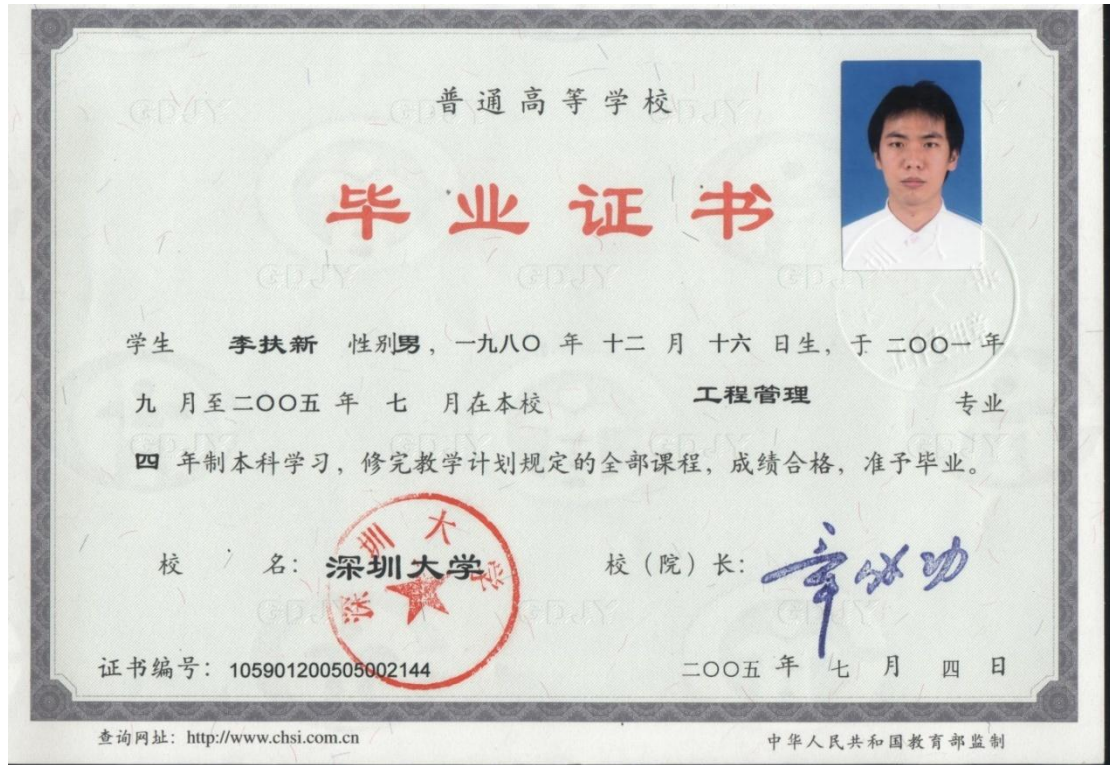 普通高等学校
毕业证书
学生 李扶新 性别男，一九八〇 年 十二 月 十六 日生，于 二〇〇一 年
九 月至二〇〇五 年 七 月在本校 工程管理 专业
四 年制本科学习，修完教学计划规定的全部课程，成绩合格，准予毕业。
校 名：深圳大学
深圳大学
校（院）长：
证书编号：105901200505002144
二〇〇五 年 七 月 四 日
查询网址：http://www.chsi.com.cn
中华人民共和国教育部监制
GDJY